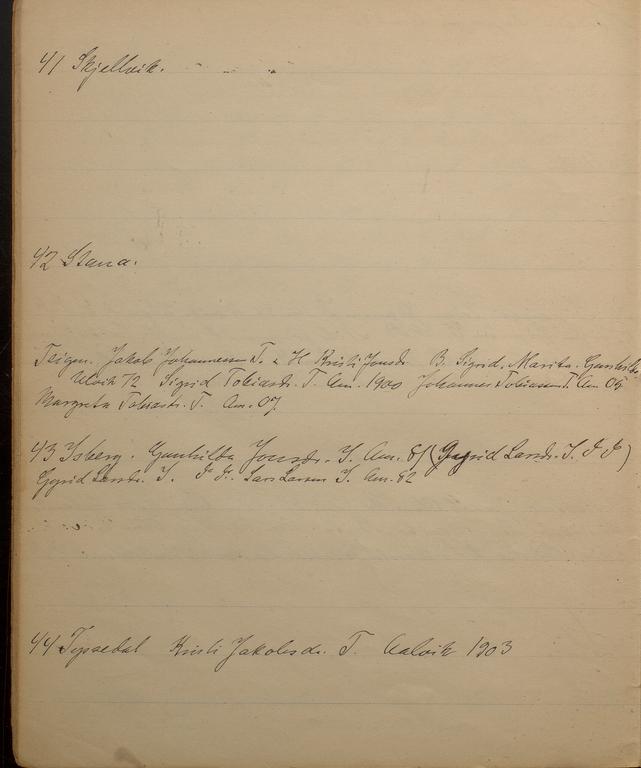 41 Skjellvik.
42 Stana.
Teigen. Jakob Johannessen T. & H Kristi Jonsdr B. Sigrid. Marita. Gunhilda
Ulvik 72 Sigrid Tobiasdr. T. Am. 1900 Johannes Tobiassen T. Am 05
Margreta Tobiasdr. T. Am. 07.
43 Isberg. Gunhilda Jonsdr. I. Am. 81 (Gygrid Larsdr. I. d d)
Gygrid Larsdr. I. d d. Lars Larsen I. Am. 82
44 Tyssedal Kristi Jakobsdr. T. Aalvik 1903